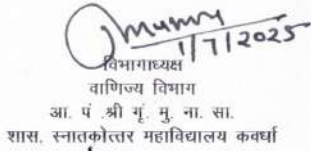 1/7/2025
विभागाध्यक्ष
वाणिज्य विभाग
आ. पं .श्री गृं. मु. ना. सा.
शास. स्नातकोत्तर महाविद्यालय कवर्धा